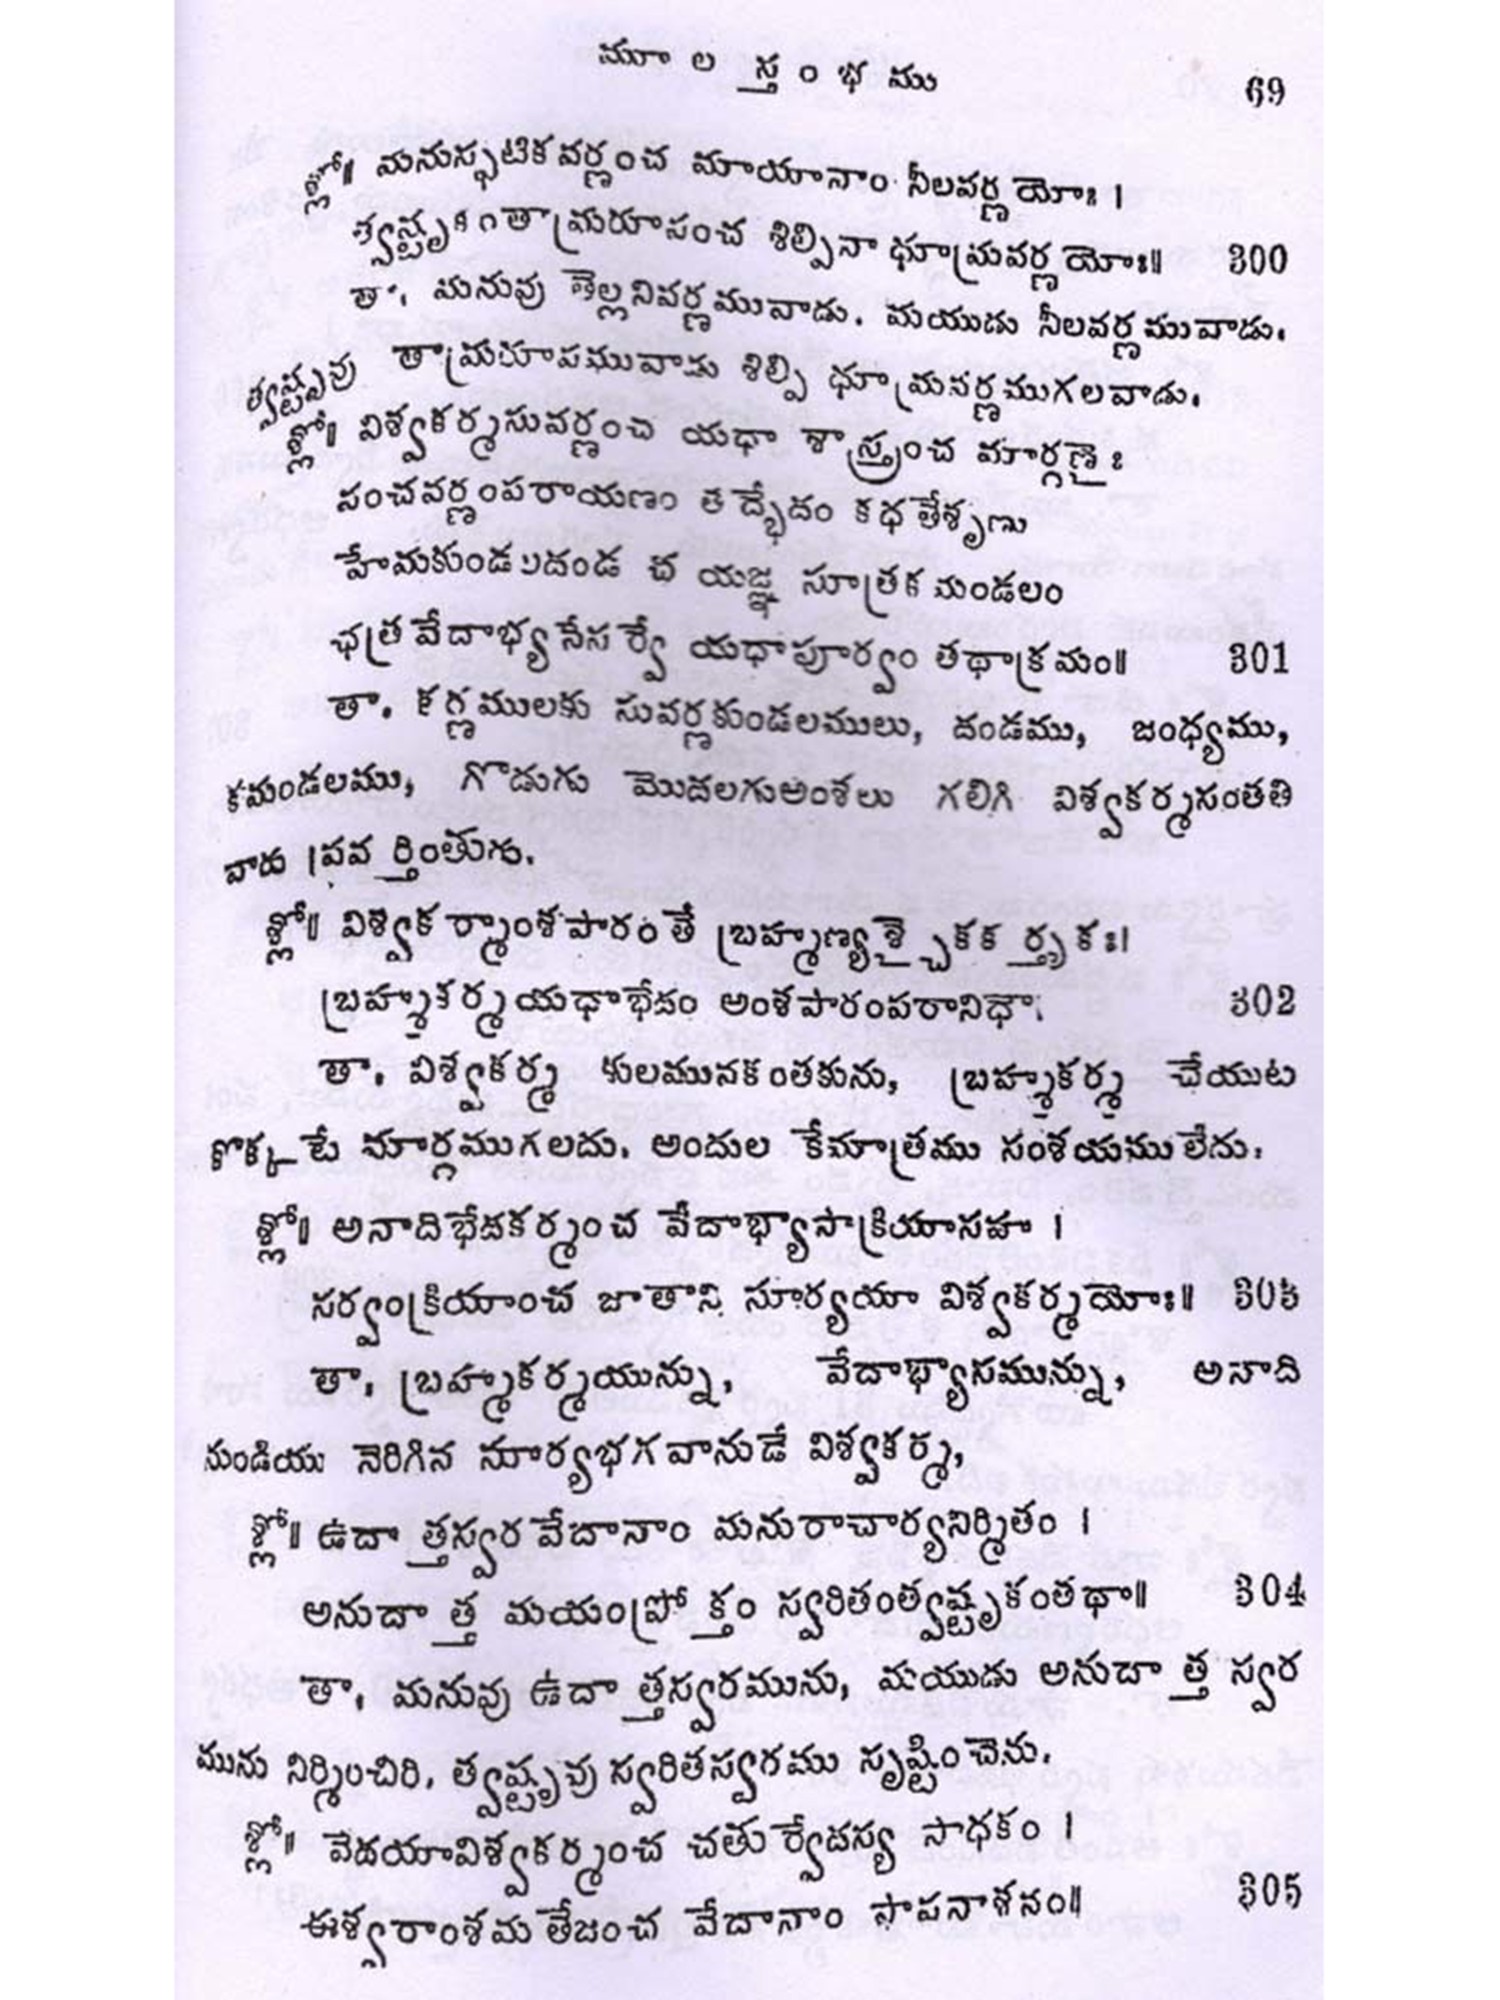 మూ ల స్తం భ ము 69
శ్లో॥ మనుస్ఫటికవర్ణంచ మాయానాం నీలవర్ణ యోః ।
త్వష్టృకంతామ్రరూపంచ శిల్పినా ధూమ్రవర్ణ యోః॥ 300
తా. మనువు తెల్లనివర్ణమువాడు. మయుడు నీలవర్ణమువాడు.
త్వష్టృవు తామ్రరూపమువాడు శిల్పి ధూమ్రవర్ణముగలవాడు.
శ్లో॥ విశ్వకర్మసువర్ణంచ యధా శాస్త్రంచ మార్గణైః
పంచవర్ణంపరాయణం తద్భేదం కధతేశృణు
హేమకుండలదండ చ యజ్ఞ సూత్రక మండలం
ఛత్ర వేదాభ్యసేసర్వే యధాపూర్వం తథాక్రమం॥ 301
తా. కర్ణములకు సువర్ణకుండలములు, దండము, జంధ్యము,
కమండలము, గొడుగు మొదలగుఅంశలు గలిగి విశ్వకర్మసంతతి
వారు ప్రవర్తింతురు.
శ్లో॥ విశ్వకర్మాంశపారంతే బ్రహ్మణ్యశ్చైకకర్తృకః।
బ్రహ్మకర్మయధాభేదం అంశపారంపరానిధౌ। 302
తా. విశ్వకర్మ కులమునకంతకును, బ్రహ్మకర్మ చేయుట
కొక్కటే మార్గముగలదు. అందుల కేమాత్రము సంశయములేదు.
శ్లో॥ అనాదిభేదకర్మంచ వేదాభ్యాసాక్రియాసహ ।
సర్వంక్రియాంచ జాతాని సూర్యయా విశ్వకర్మయోః॥ 303
తా. బ్రహ్మకర్మయున్ను, వేదాభ్యాసమున్ను, అనాది
నుండియు నెరిగిన సూర్యభగవానుడే విశ్వకర్మ.
శ్లో॥ ఉదాత్తస్వర వేదానాం మనురాచార్యనిర్మితం ।
అనుదాత్త మయంప్రోక్తం స్వరితంత్వష్టృకంతథా॥ 304
తా. మనువు ఉదాత్తస్వరమును, మయుడు అనుదాత్త స్వర
మును నిర్మించిరి. త్వష్టృవు స్వరితస్వరము సృష్టించెను.
శ్లో॥ వేదయావిశ్వకర్మంచ చతుర్వేదస్య సాధకం ।
ఈశ్వరాంశమతేజంచ వేదానాం పాపనాశనం॥ 305